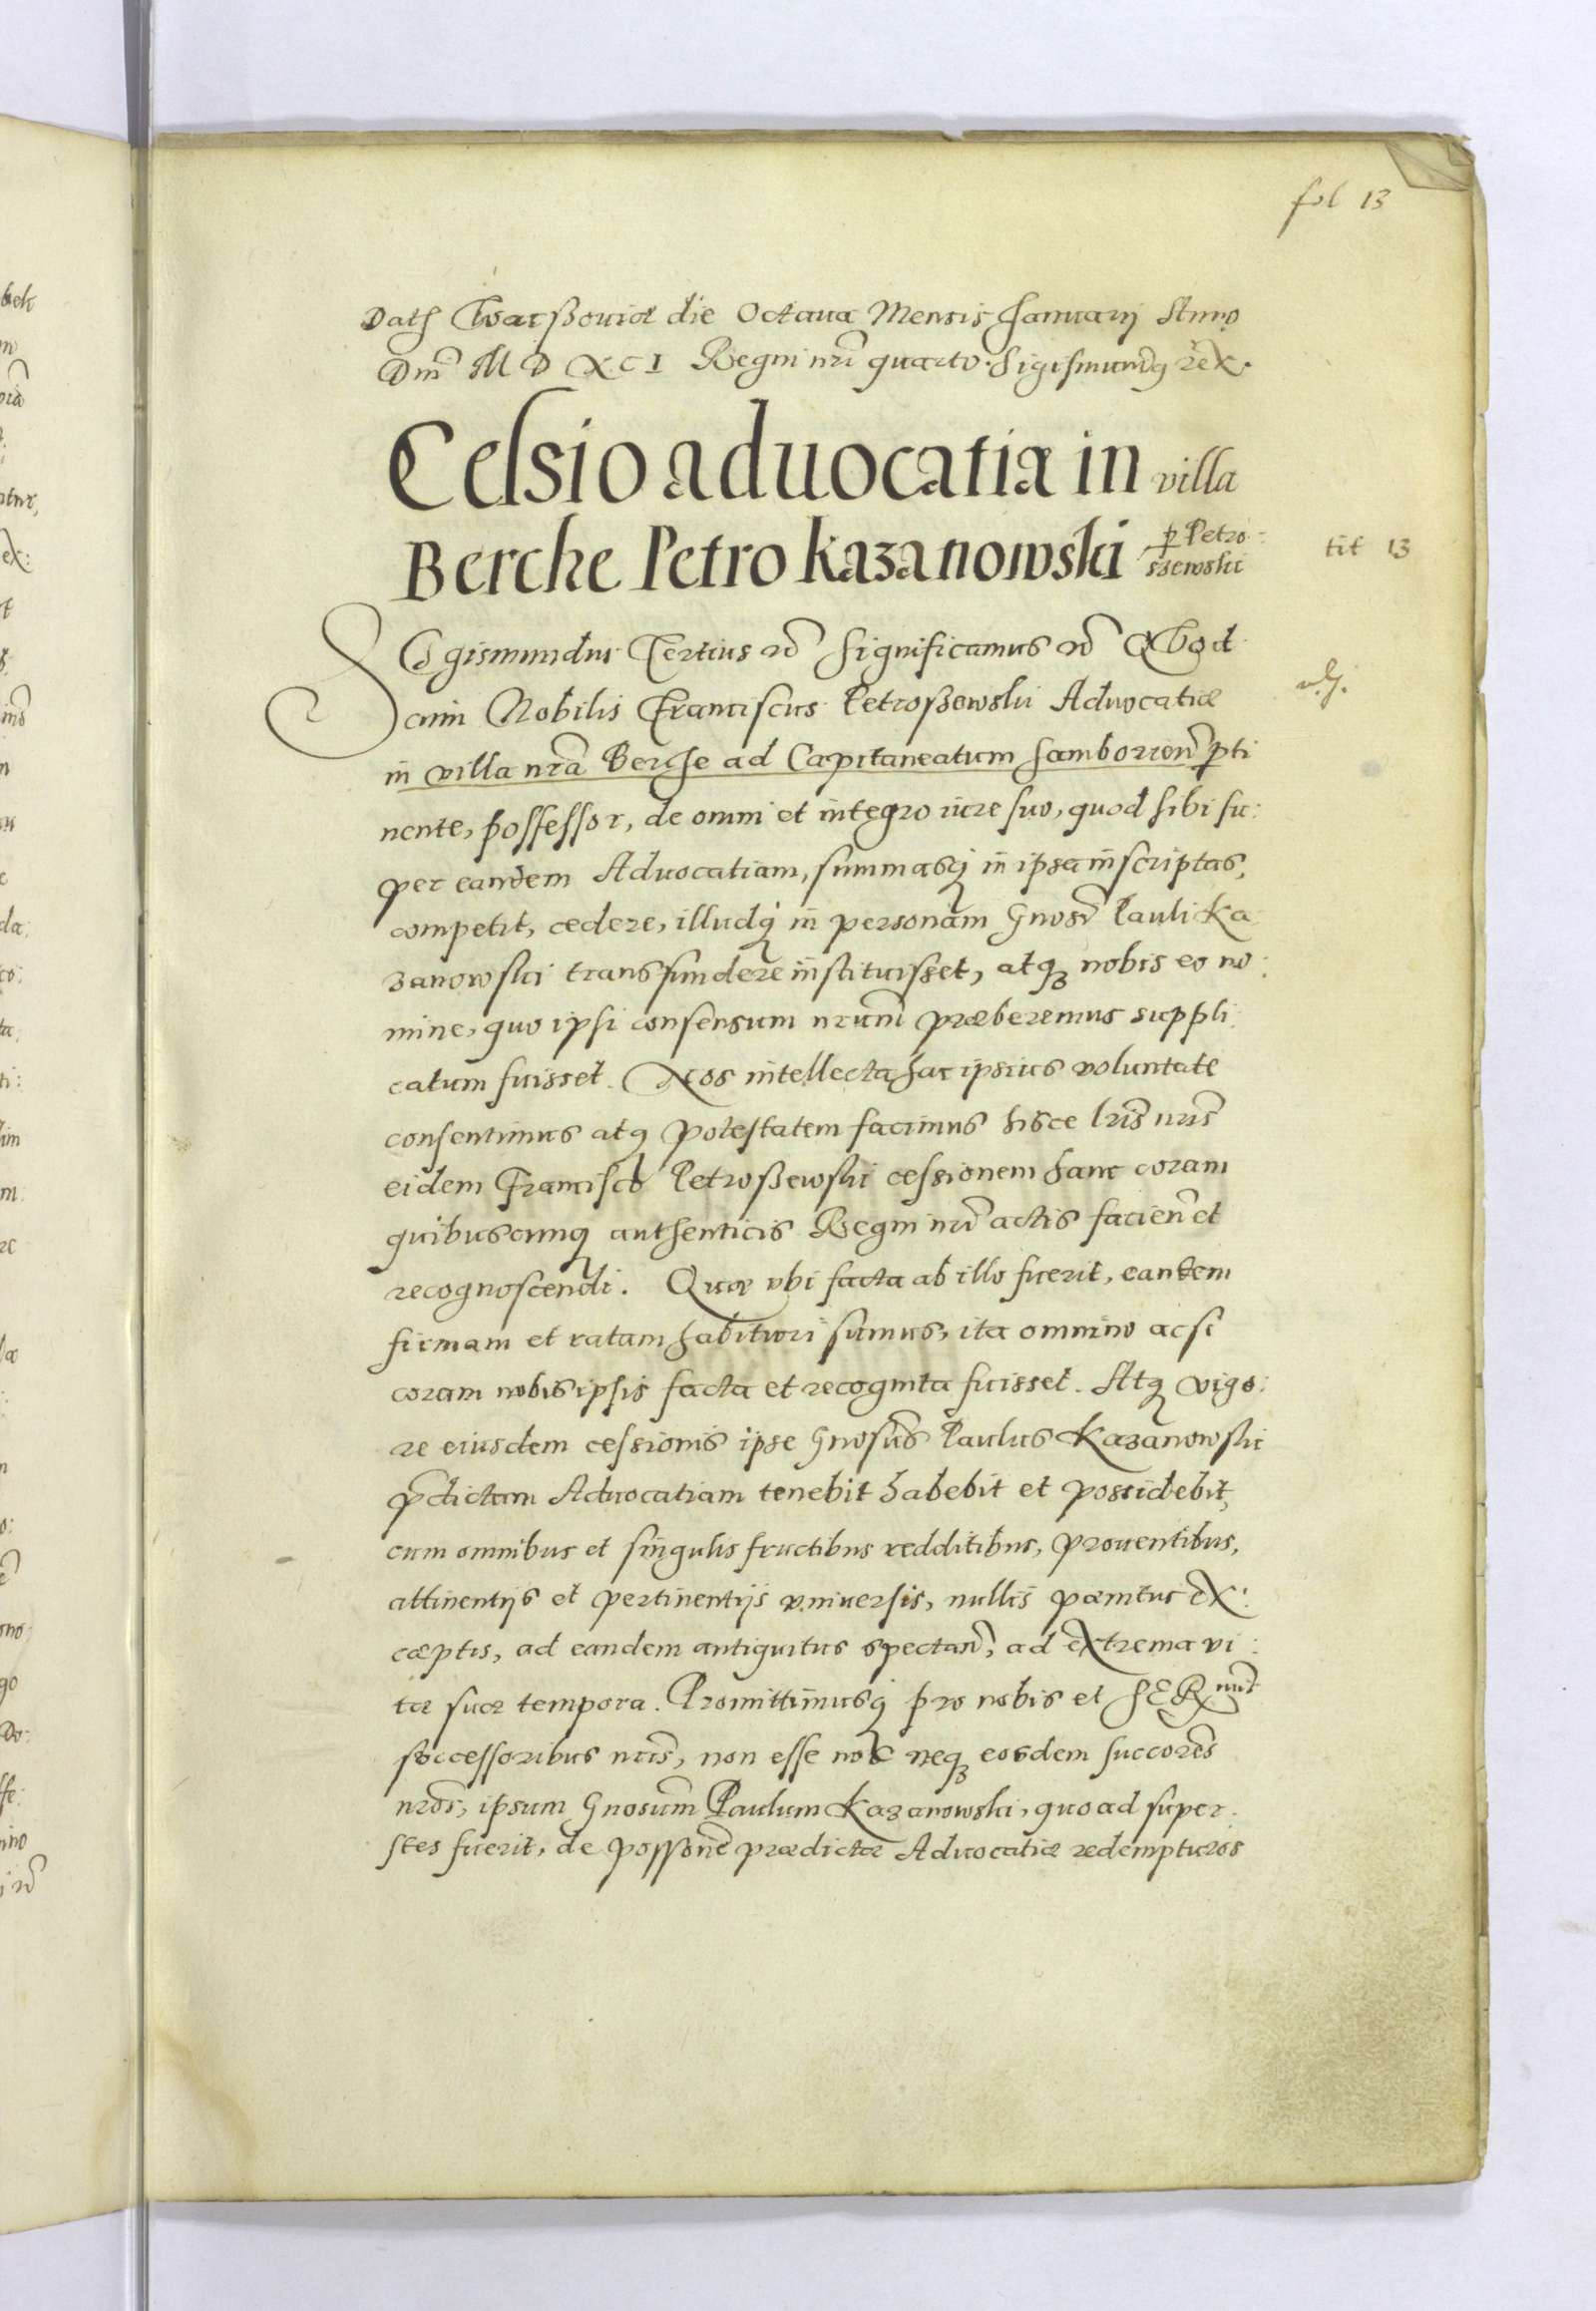 fol 13
Datȝ Warßouiæ die Octaua Mensis Januarij Anno
Dnī M D X C I Regni nrī quarto. Sigismundꝯ Rex.
Celsio aduocatiæ in villa
Berche Petro Kazanowski ꝑ Petro
szewski
tit 13
Sigismundus Tertius ꝛc̄ Significamus ꝛc̄ Quod
cum Nobilis Franciscus Petroßewski Aduocatiæ
in villa nrā Berche ad Capitaneatum Samborien̄ ꝑti
nente, possessor, de omni et integro iure suo, quod sibi su:
per eandem Aduocatiam, summasqꝫ in ipsa inscriptas,
competit, cedere, illudqꝫ in personam Gnosī Pauli Ka
zanowski transfundere instituisset, atqꝫ nobis eo no:
mine, quo ipsi consensum nrūm præberemus suppli:
catum fuisset. Nos intellecta hac ipsius voluntate
consentimus atqꝫ potestatem facimus hisce lrīs nrīs
eidem Francisco Petroßewski cessionem hanc coram
quibuscunqꝫ authenticis Regni nrī actis facien̄ et
recognoscendi. Quæ vbi facta ab illo fuerit, eandem
firmam et ratam habituri sumus, ita omnino acsi
coram nobis ipsis facta et recognita fuisset. Atqꝫ vigo:
re eiusdem cessionis ipse Gnosūs Paulus Kazanowski
p̄dictam Aduocatiam tenebit habebit et possidebit,
cum omnibus et singulis fructibus redditibus, prouentibus,
attinentijs et pertinentijs vniuersis, nullis pænitus ex:
cæptis, ad eandem antiquitus spectan̄, ad extrema vi:
tæ suæ tempora. Promittimusqꝫ pro nobis et SER nmīs
successoribus nrīs, non esse nos neqꝫ eosdem succorēs
nrōs, ipsum Gnosūm Paulum Kazanowski, quoad super:
stes fuerit, de possonē prædictæ Aduocatiæ redempturos